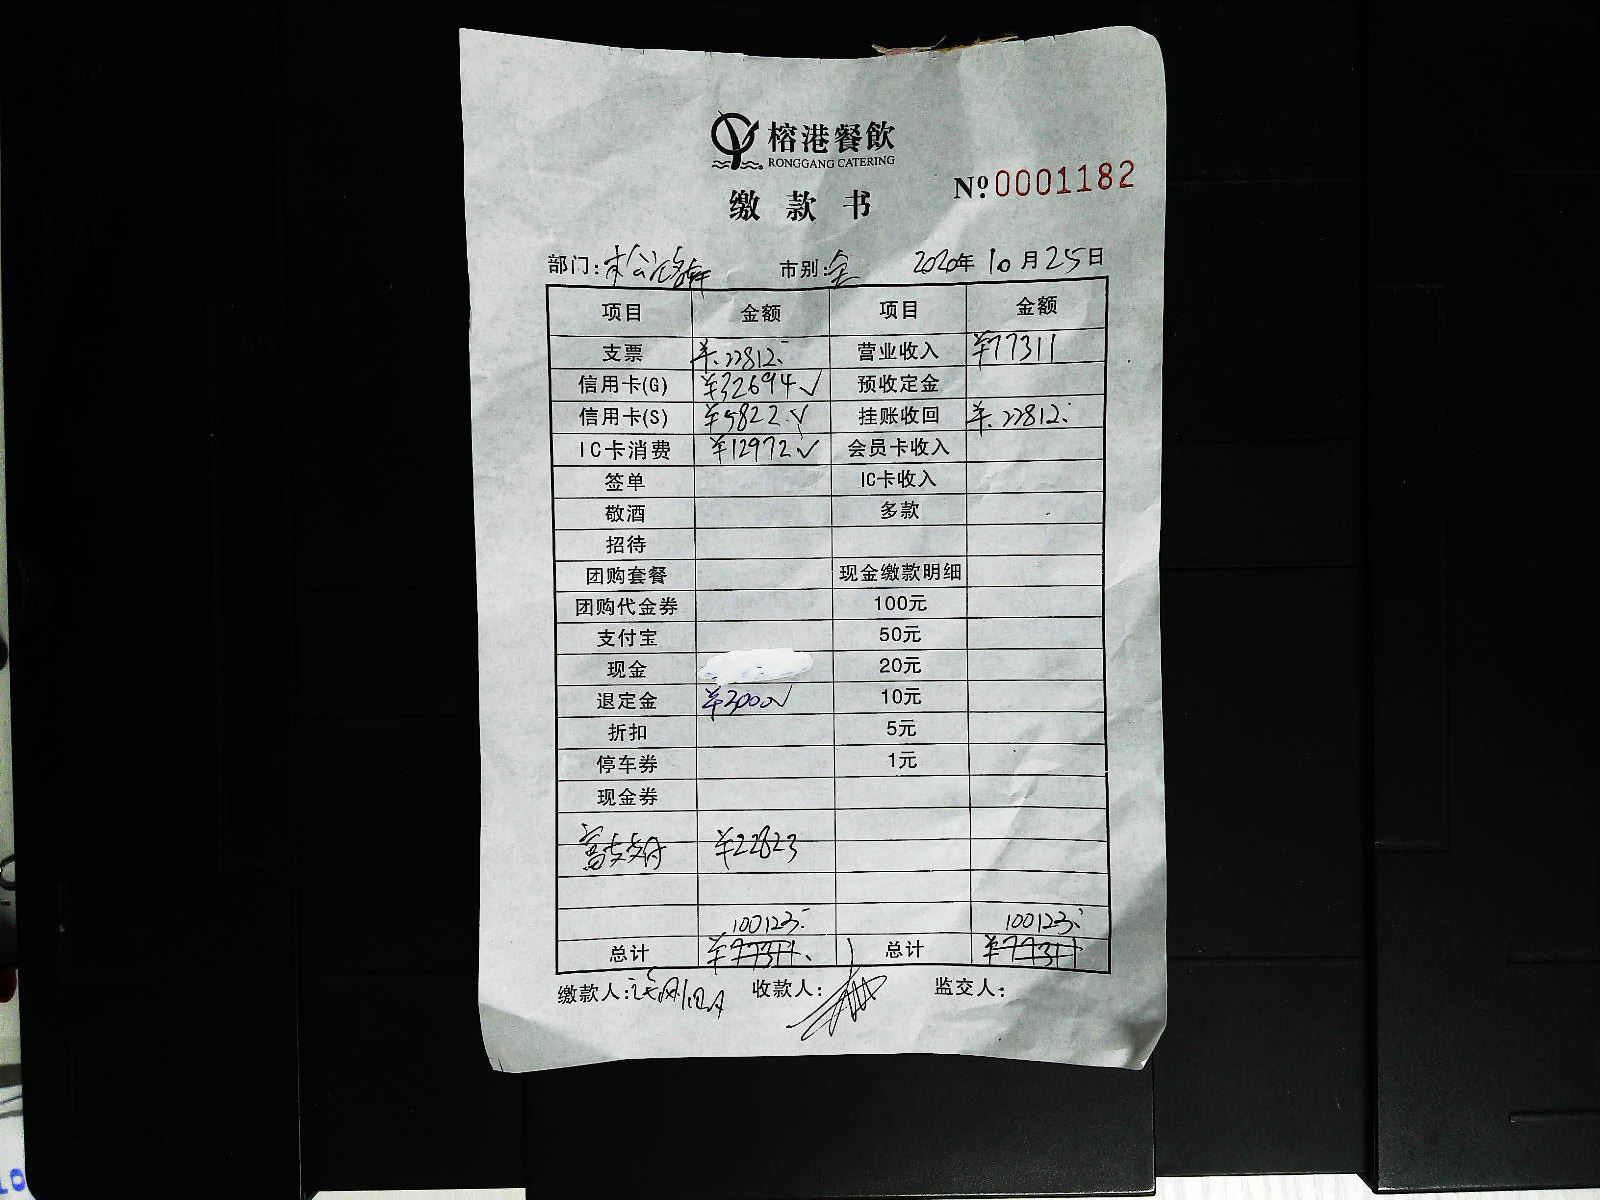 榕港餐飲
RONGGANG CATERING
缴款书
№ 0001182
部门: 市别:全 2020年10月25日
项目 金额 项目 金额
支票 ¥22812. 营业收入 ¥77311
信用卡(G) ¥32694✓ 预收定金
信用卡(S) ¥5822✓ 挂账收回 ¥22812.
IC卡消费 ¥12972✓ 会员卡收入
签单 IC卡收入
敬酒 多款
招待
团购套餐 现金缴款明细
团购代金券 100元
支付宝 50元
现金 20元
退定金 ¥3000✓ 10元
折扣 5元
停车券 1元
现金券
富友支付 ¥22823
100123. 100123.
总计 ¥77311. 总计 ¥77311
缴款人: 收款人: 监交人: